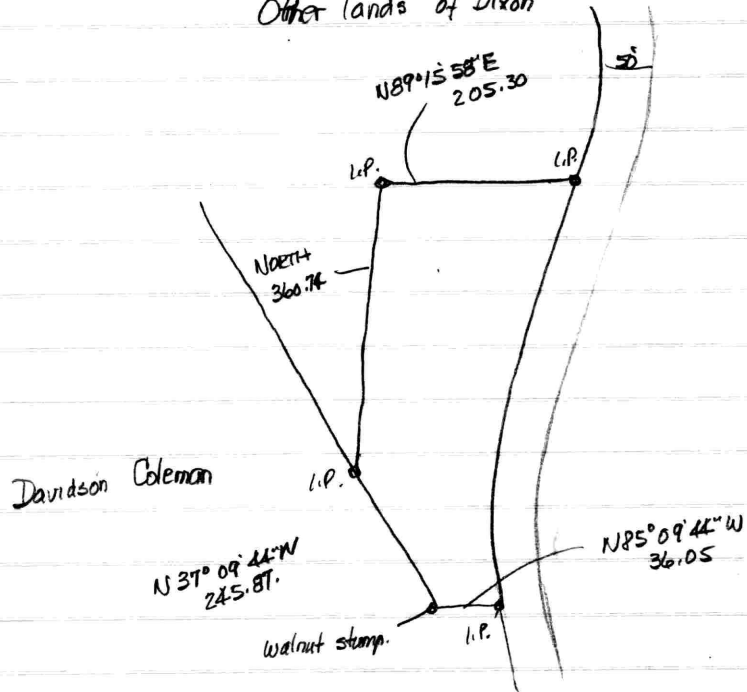 Other lands of Dixon
50'
N89°15'58"E
205.30
I.P.
I.P.
NORTH
360.74
Davidson Coleman
I.P.
N37°09'44"W
245.87.
N85°09'44"W
36.05
walnut stump.
I.P.